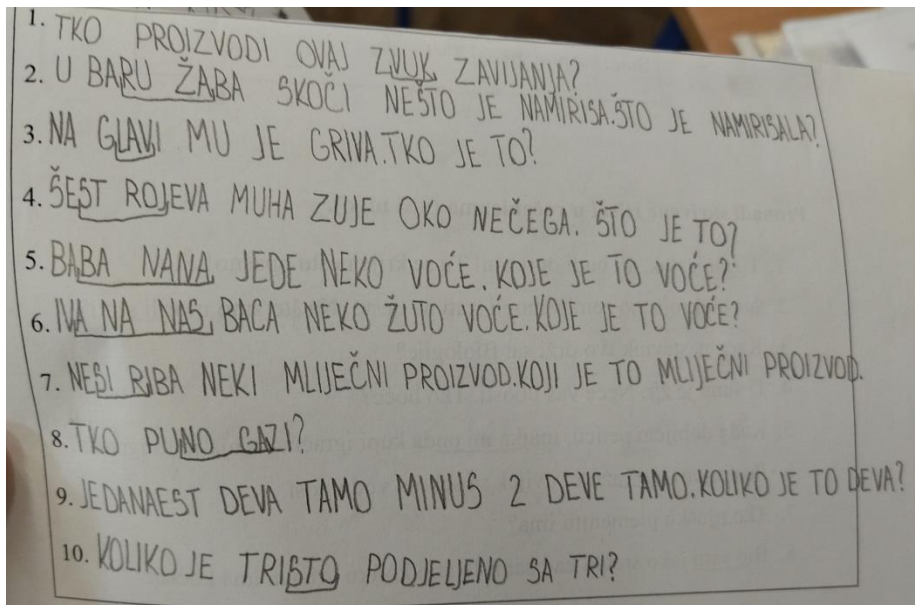 1. TKO PROIZVODI OVAJ ZVUK ZAVIJANJA?
2. U BARU ŽABA SKOČI NEŠTO JE NAMIRISA.ŠTO JE NAMIRISALA?
3. NA GLAVI MU JE GRIVA.TKO JE TO?
4. ŠEST ROJEVA MUHA ZUJE OKO NEČEGA. ŠTO JE TO?
5. BABA NANA JEDE NEKO VOĆE. KOJE JE TO VOĆE?
6. IVA NA NAS BACA NEKO ŽUTO VOĆE.KOJE JE TO VOĆE?
7. NESI RIBA NEKI MLIJEČNI PROIZVOD.KOJI JE TO MLIJEČNI PROIZVOD.
8. TKO PUNO GAZI?
9. JEDANAEST DEVA TAMO MINUS 2 DEVE TAMO.KOLIKO JE TO DEVA?
10. KOLIKO JE TRISTO PODJELJENO SA TRI?